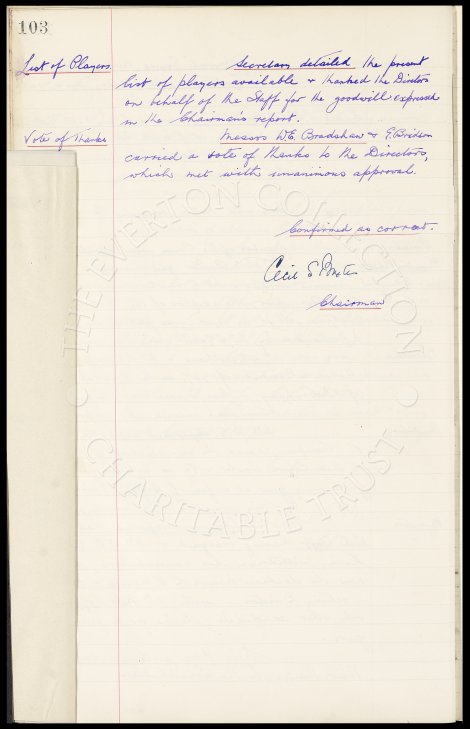 103
List of Players
Secretary detailed the present
list of players available & thanked the Directors
on behalf of the Staff for the goodwill expressed
in the Chairman's report.
Vote of Thanks
Messrs W.C. Bradshaw & G. Bridson
carried a vote of thanks to the Directors,
which met with unanimous approval.
Confirmed as correct.
Cecil S
Chairman
THE EVERTON COLLECTION
CHARITABLE TRUST